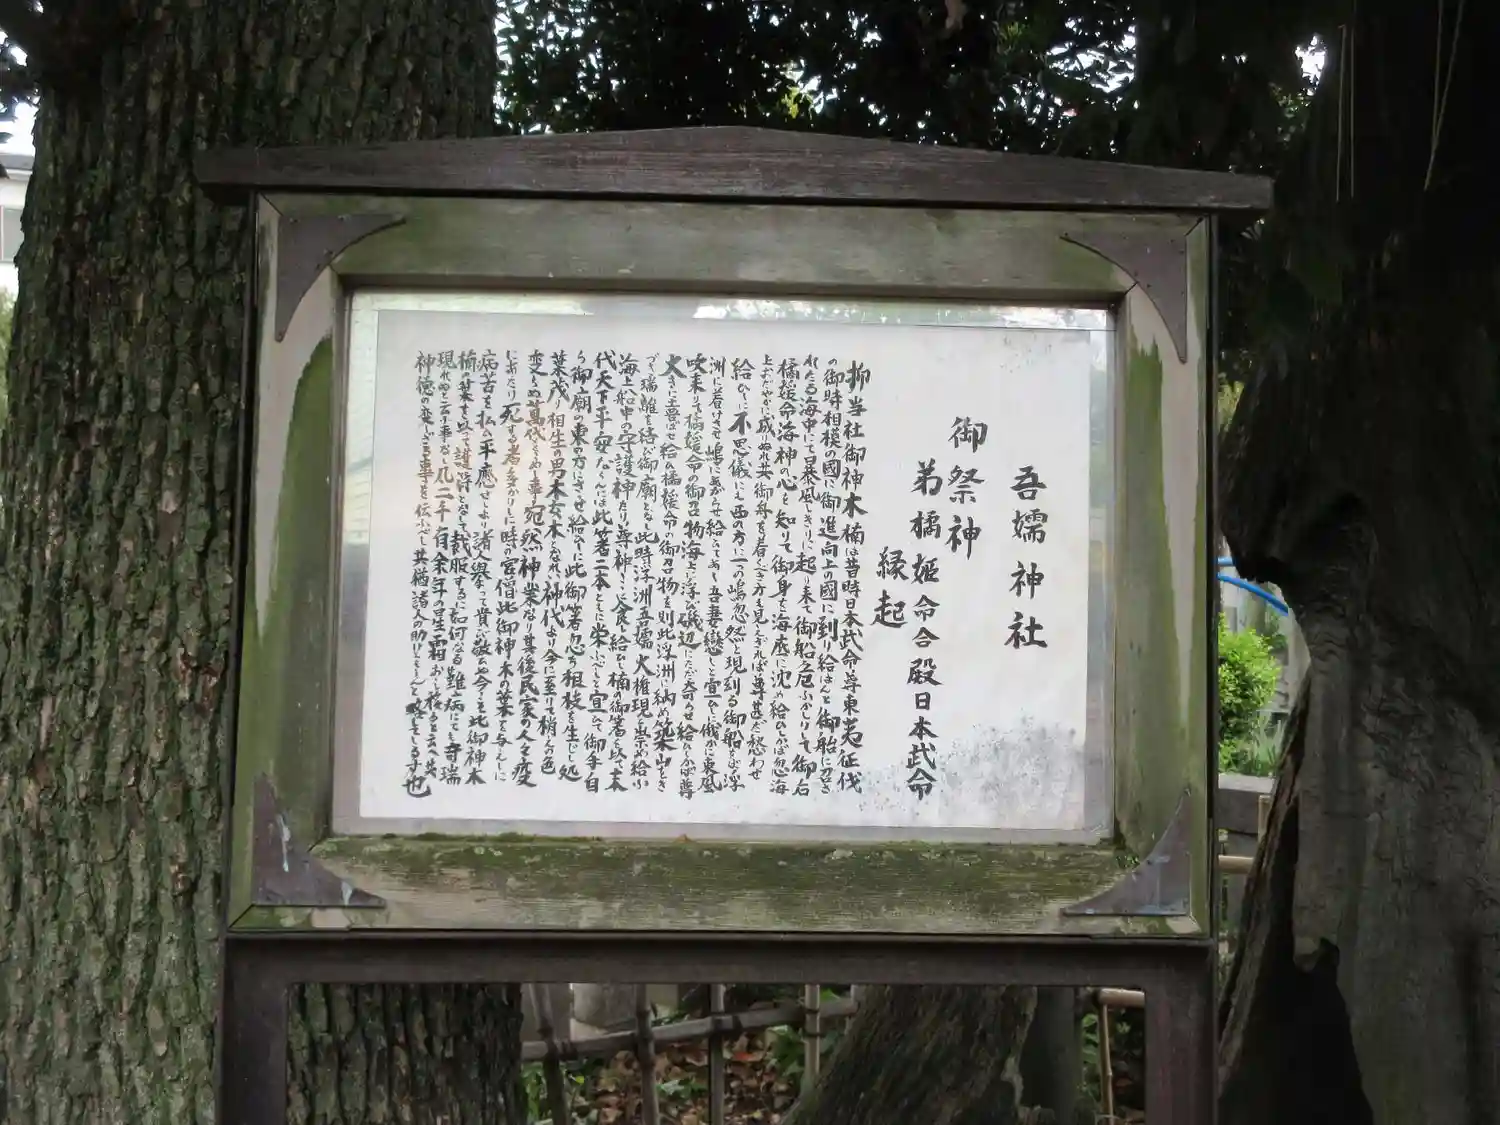 吾嬬神社
御祭神
弟橘姫命合殿日本武命
縁起
抑当社御神木楠は昔時日本武命尊東夷征伐
の御時相模の國に御進向上の國に到り給はんと御船に召さ
れたる海中にて暴風しきりに起り来て御船危ふかりしに御后
橘媛命海神の心を知りて御身を海底に沈め給ひしかば忽海
上おだやかに成りぬれ共御舟を着くべき方も見えざれば尊甚だ愁わせ
給ひしに不思儀にも西の方に一つの嶋忽然と現到る御船をば浮
洲に着けさせ嶋にあがらせ給ひてあゝ吾妻戀しと宣ひしに俄かに東風
吹来りて橘媛命の御召物海上に浮び磯辺にただ寄らせ給ひしかば尊
大きに喜ばせ給ひ橘媛命の御召物を則此浮洲に納め築山をき
づき瑞離を結び御廟となし此時浮洲吾嬬大権現と崇め給ふ
海上船中の守護神たり尊神こゝに食し給ひし楠の御箸を以て末
代天下平安ならんには此箸二本ともに栄ふべしと宣ひて御手自
ら御廟の東の方にさゝせ給ひしに此御箸忽ち根枝を生じし処
葉茂り相生の男木女木となれり神代より今に至りて梢の色
変らぬ萬代をこめし事宛然神業なり其後民家の人々疫
にあたり死する者多かりしに時の宮僧此御神木の葉を与へしに
病苦を払ひ平癒せしより諸人挙って貴び敬ひぬ今こそ此御神木
楠の葉を以って護符となして裁服するに如何なる難病にても奇瑞
現れぬと云ふ事なし凡二千有余年の星霜おし移ると云へ共
神徳の変らざる事を伝ふべし其猶諸人の助けともならんと略してしるす也